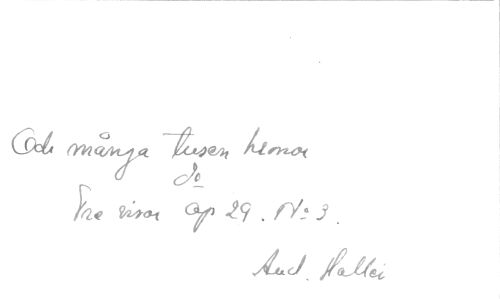 Och många tusen kronor
do
Tre visor op 29. No 3.
And. Hallén